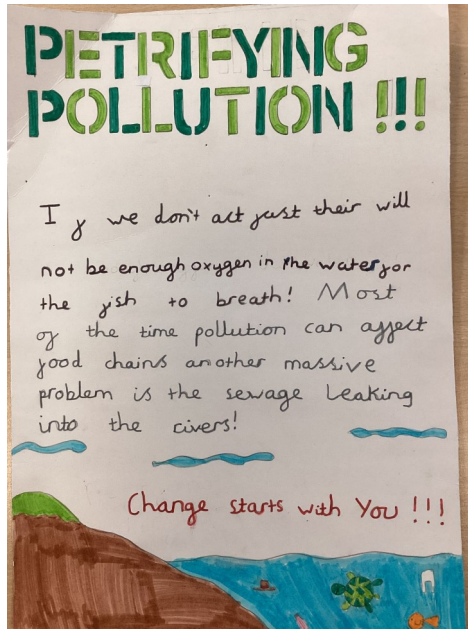 PETRIFYING
POLLUTION !!!
If we don't act fast their will
not be enough oxygen in the water for
the fish to breath! Most
of the time pollution can affect
food chains another massive
problem is the sewage leaking
into the rivers!
Change starts with You !!!